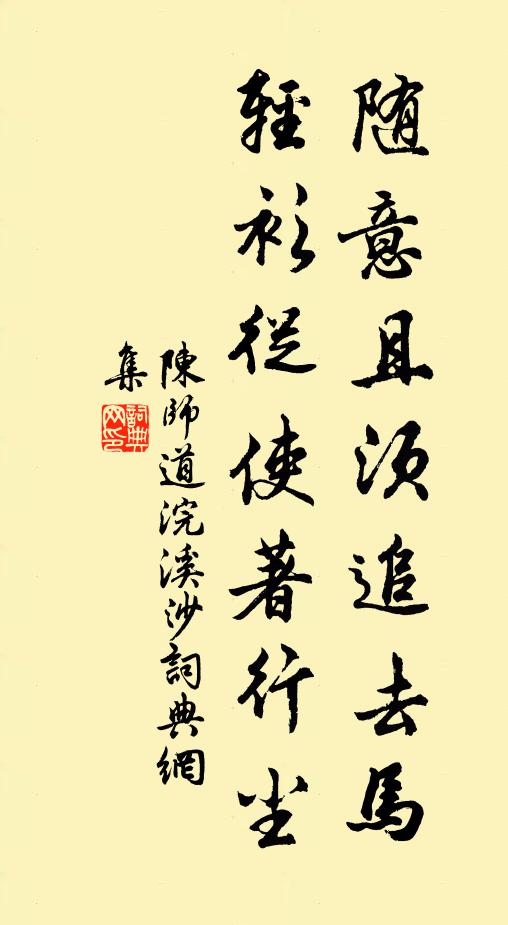 随意且须追去馬
輕衫從使著行尘
陳師道浣溪沙詞典網
集
詞典
网印